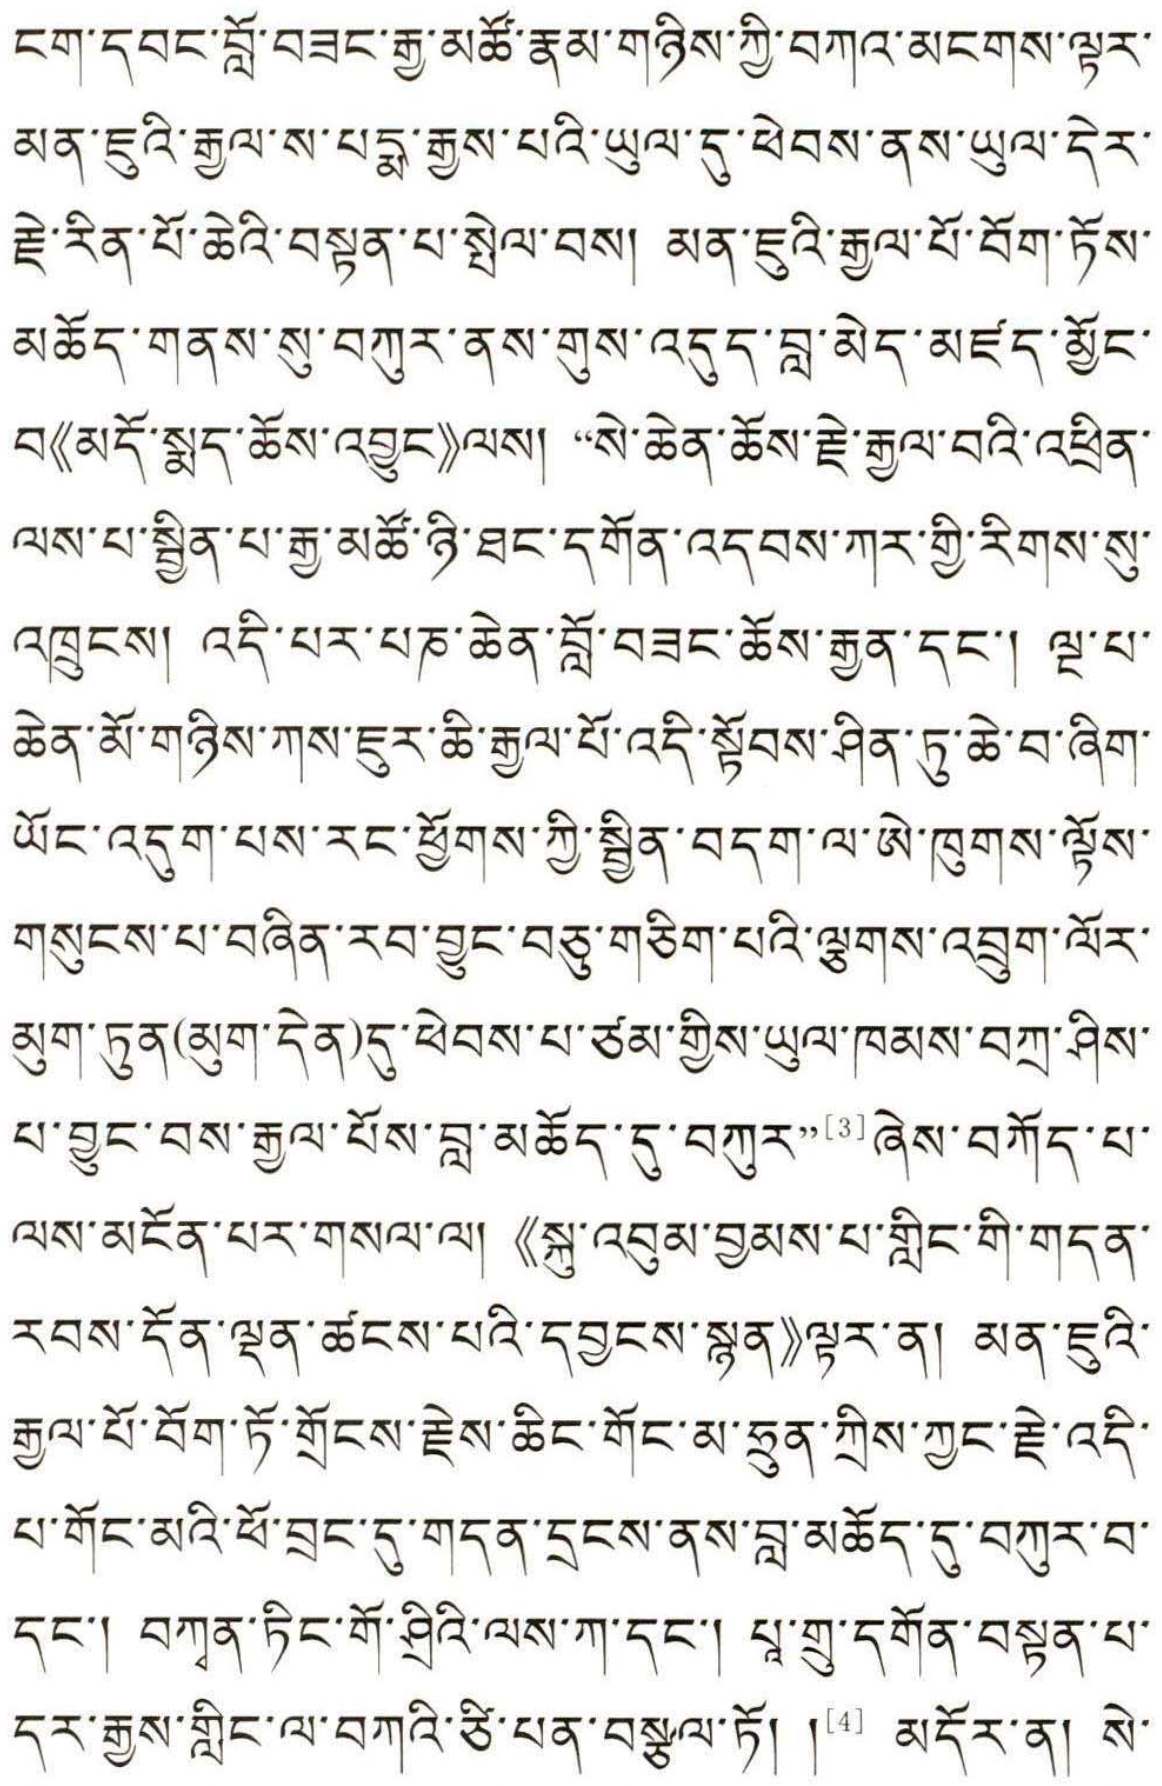 ངག་དབང་བློ་བཟང་རྒྱ་མཚོ་རྣམ་གཉིས་ཀྱི་བཀའ་མངགས་ལྟར་
མན་ཇུའི་རྒྱལ་ས་པདྨ་རྒྱས་པའི་ཡུལ་དུ་ཕེབས་ནས་ཡུལ་དེར་
རྗེ་རིན་པོ་ཆེའི་བསྟན་པ་སྤེལ་བས། མན་ཇུའི་རྒྱལ་པོ་བོག་ཏོས་
མཆོད་གནས་སུ་བཀུར་ནས་གུས་འདུད་བླ་མེད་མཛད་མྱོང་
བ《མདོ་སྨད་ཆོས་འབྱུང》ལས། “སེ་ཆེན་ཆོས་རྗེ་རྒྱལ་བའི་འཕྲིན་
ལས་པ་སྦྱིན་པ་རྒྱ་མཚོ་ཉི་ཐང་དགོན་འདབས་ཀར་གྱི་རིགས་སུ་
འཁྲུངས། འདི་པར་པཎ་ཆེན་བློ་བཟང་ཆོས་རྒྱན་དང་། ལྔ་པ་
ཆེན་མོ་གཉིས་ཀས་ཇུར་ཆི་རྒྱལ་པོ་འདི་སྟོབས་ཤིན་ཏུ་ཆེ་བ་ཞིག་
ཡོང་འདུག་པས་རང་ཕྱོགས་ཀྱི་སྦྱིན་བདག་ལ་ཨེ་ཁུགས་ལྟོས་
གསུངས་པ་བཞིན་རབ་བྱུང་བཅུ་གཅིག་པའི་ལྕགས་འབྲུག་ལོར་
མུག་ཏུན(མུག་དེན)དུ་ཕེབས་པ་ཙམ་གྱིས་ཡུལ་ཁམས་བཀྲ་ཤིས་
པ་བྱུང་བས་རྒྱལ་པོས་བླ་མཆོད་དུ་བཀུར”[3]ཞེས་བཀོད་པ་
ལས་མངོན་པར་གསལ་ལ། 《སྐུ་འབུམ་བྱམས་པ་གླིང་གི་གདན་
རབས་དོན་ལྡན་ཚངས་པའི་དབྱངས་སྙན》ལྟར་ན། མན་ཇུའི་
རྒྱལ་པོ་བོག་ཏོ་གྲོངས་རྗེས་ཆིང་གོང་མ་ཧྲུན་ཀྲིས་ཀྱང་རྗེ་འདི་
པ་གོང་མའི་ཕོ་བྲང་དུ་གདན་དྲངས་ནས་བླ་མཆོད་དུ་བཀུར་བ་
དང་། བཀྭན་ཏིང་གོ་ཤྲིའི་ལས་ཀ་དང་། པཱ་གྲུ་དགོན་བསྟན་པ་
དར་རྒྱས་གླིང་ལ་བཀའི་ཙོ་པན་བསྩལ་ཏོ། །[4] མདོར་ན། སེ་